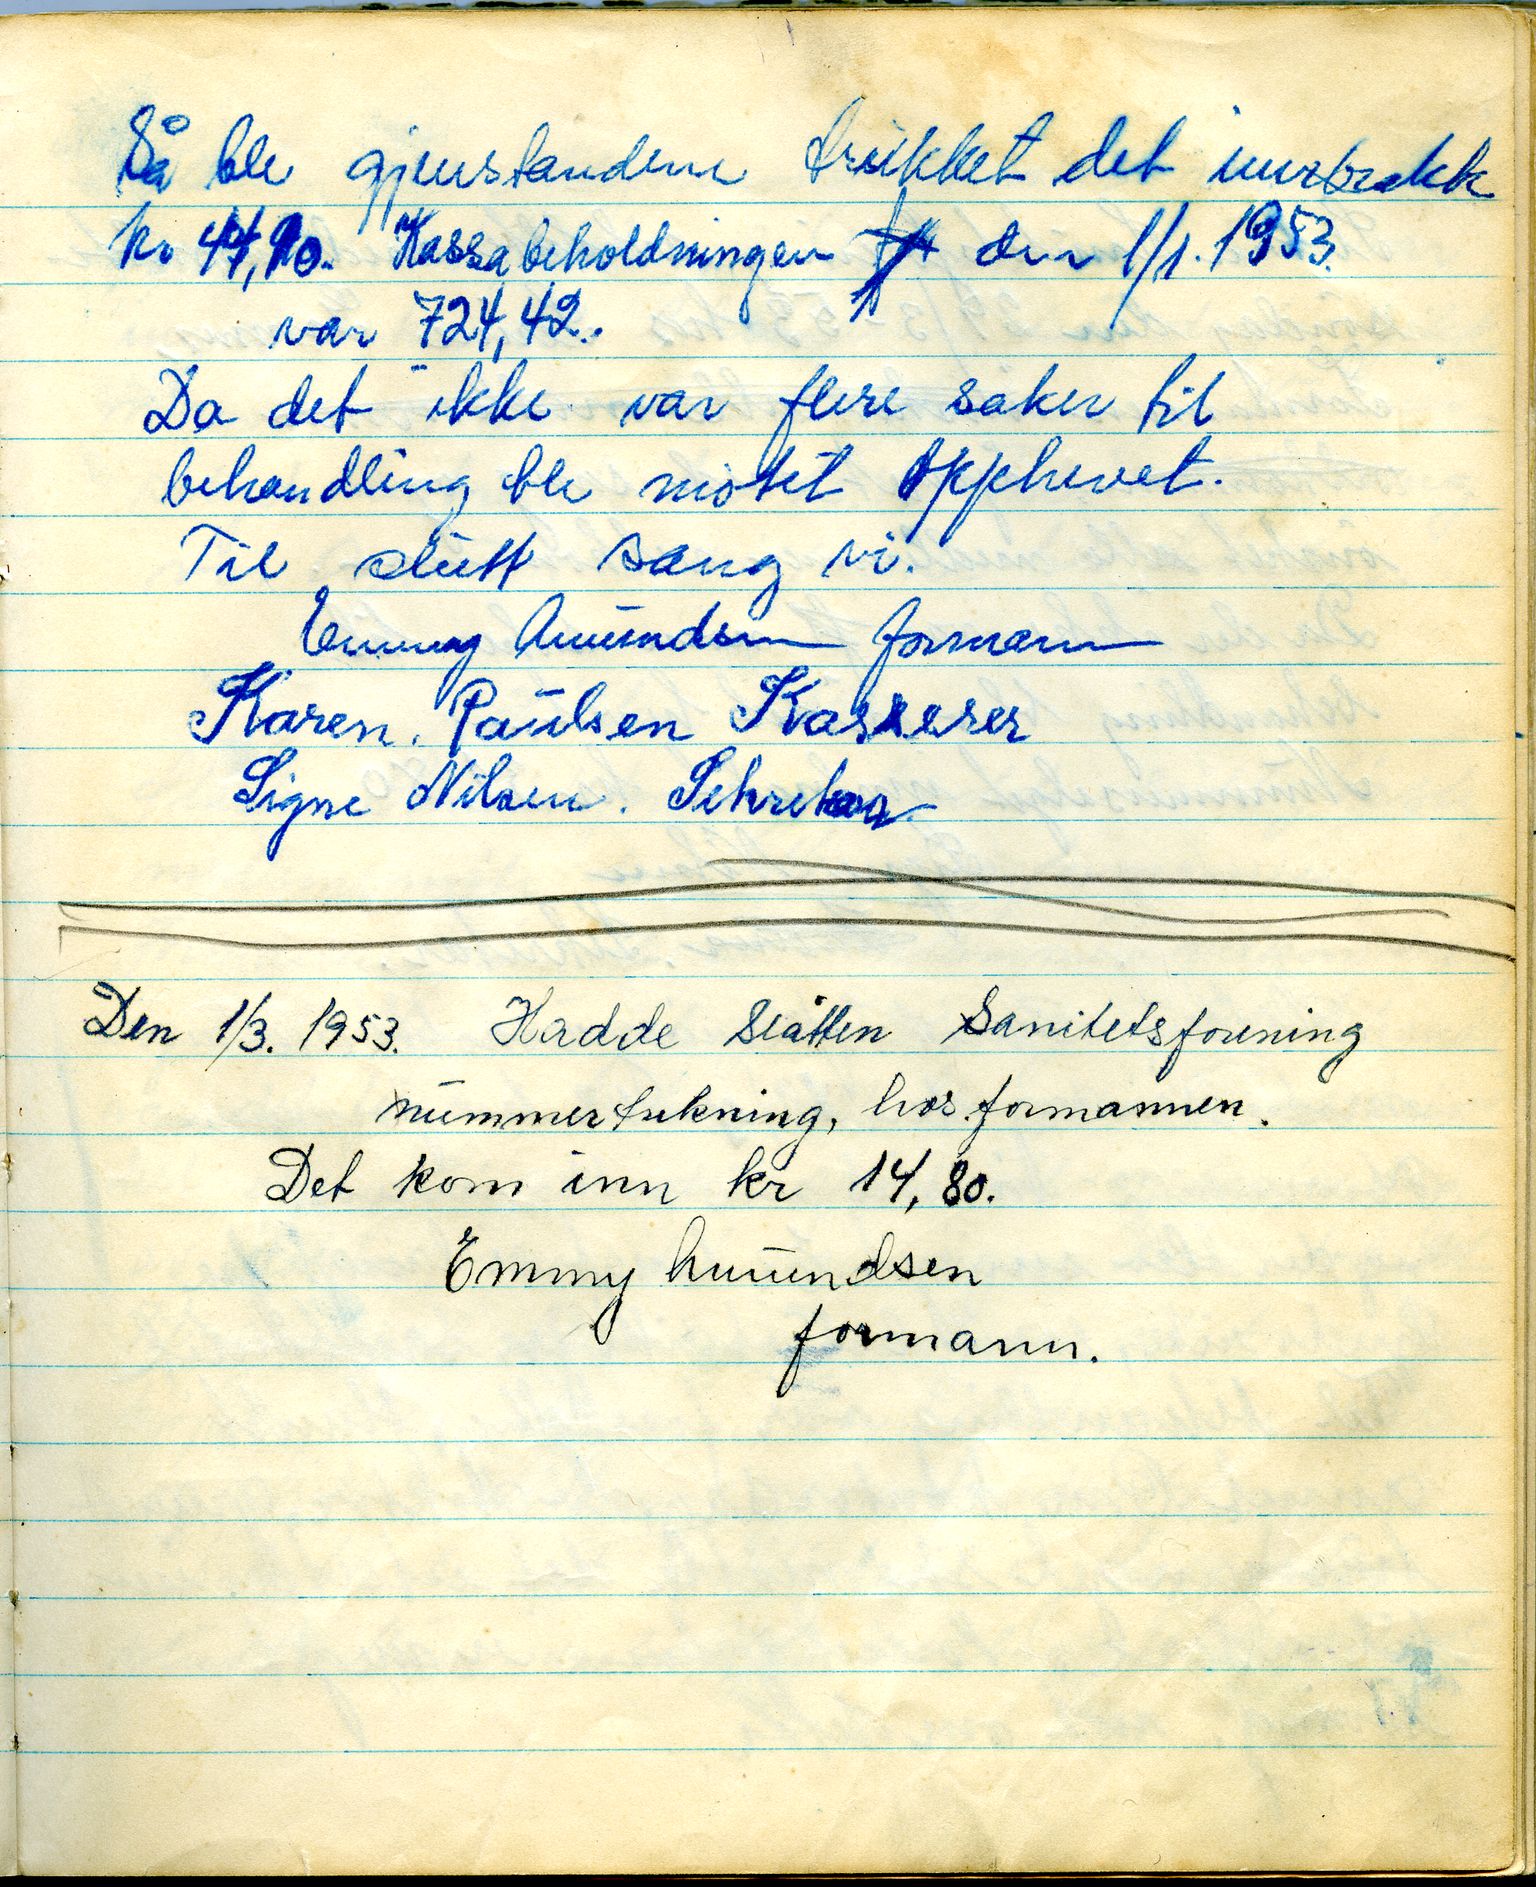 Så ble gjenstandene trukket det innbrakk
kr 44,90. Kassabeholdningen den 1/1. 1953.
var 724,42.
Da det ikke var flere saker til
behandling ble møtet Opphevet.
Til slutt sang vi.
Emmy Amundsen formann
Karen. Paulsen Kasserer
Signe Nilsen. Sekretær
Den 1/3. 1953. Hadde Slåtten Sanitetsforening
nummertrekning, hos formannen.
Det kom inn kr 14,80.
Emmy Amundsen
formann.